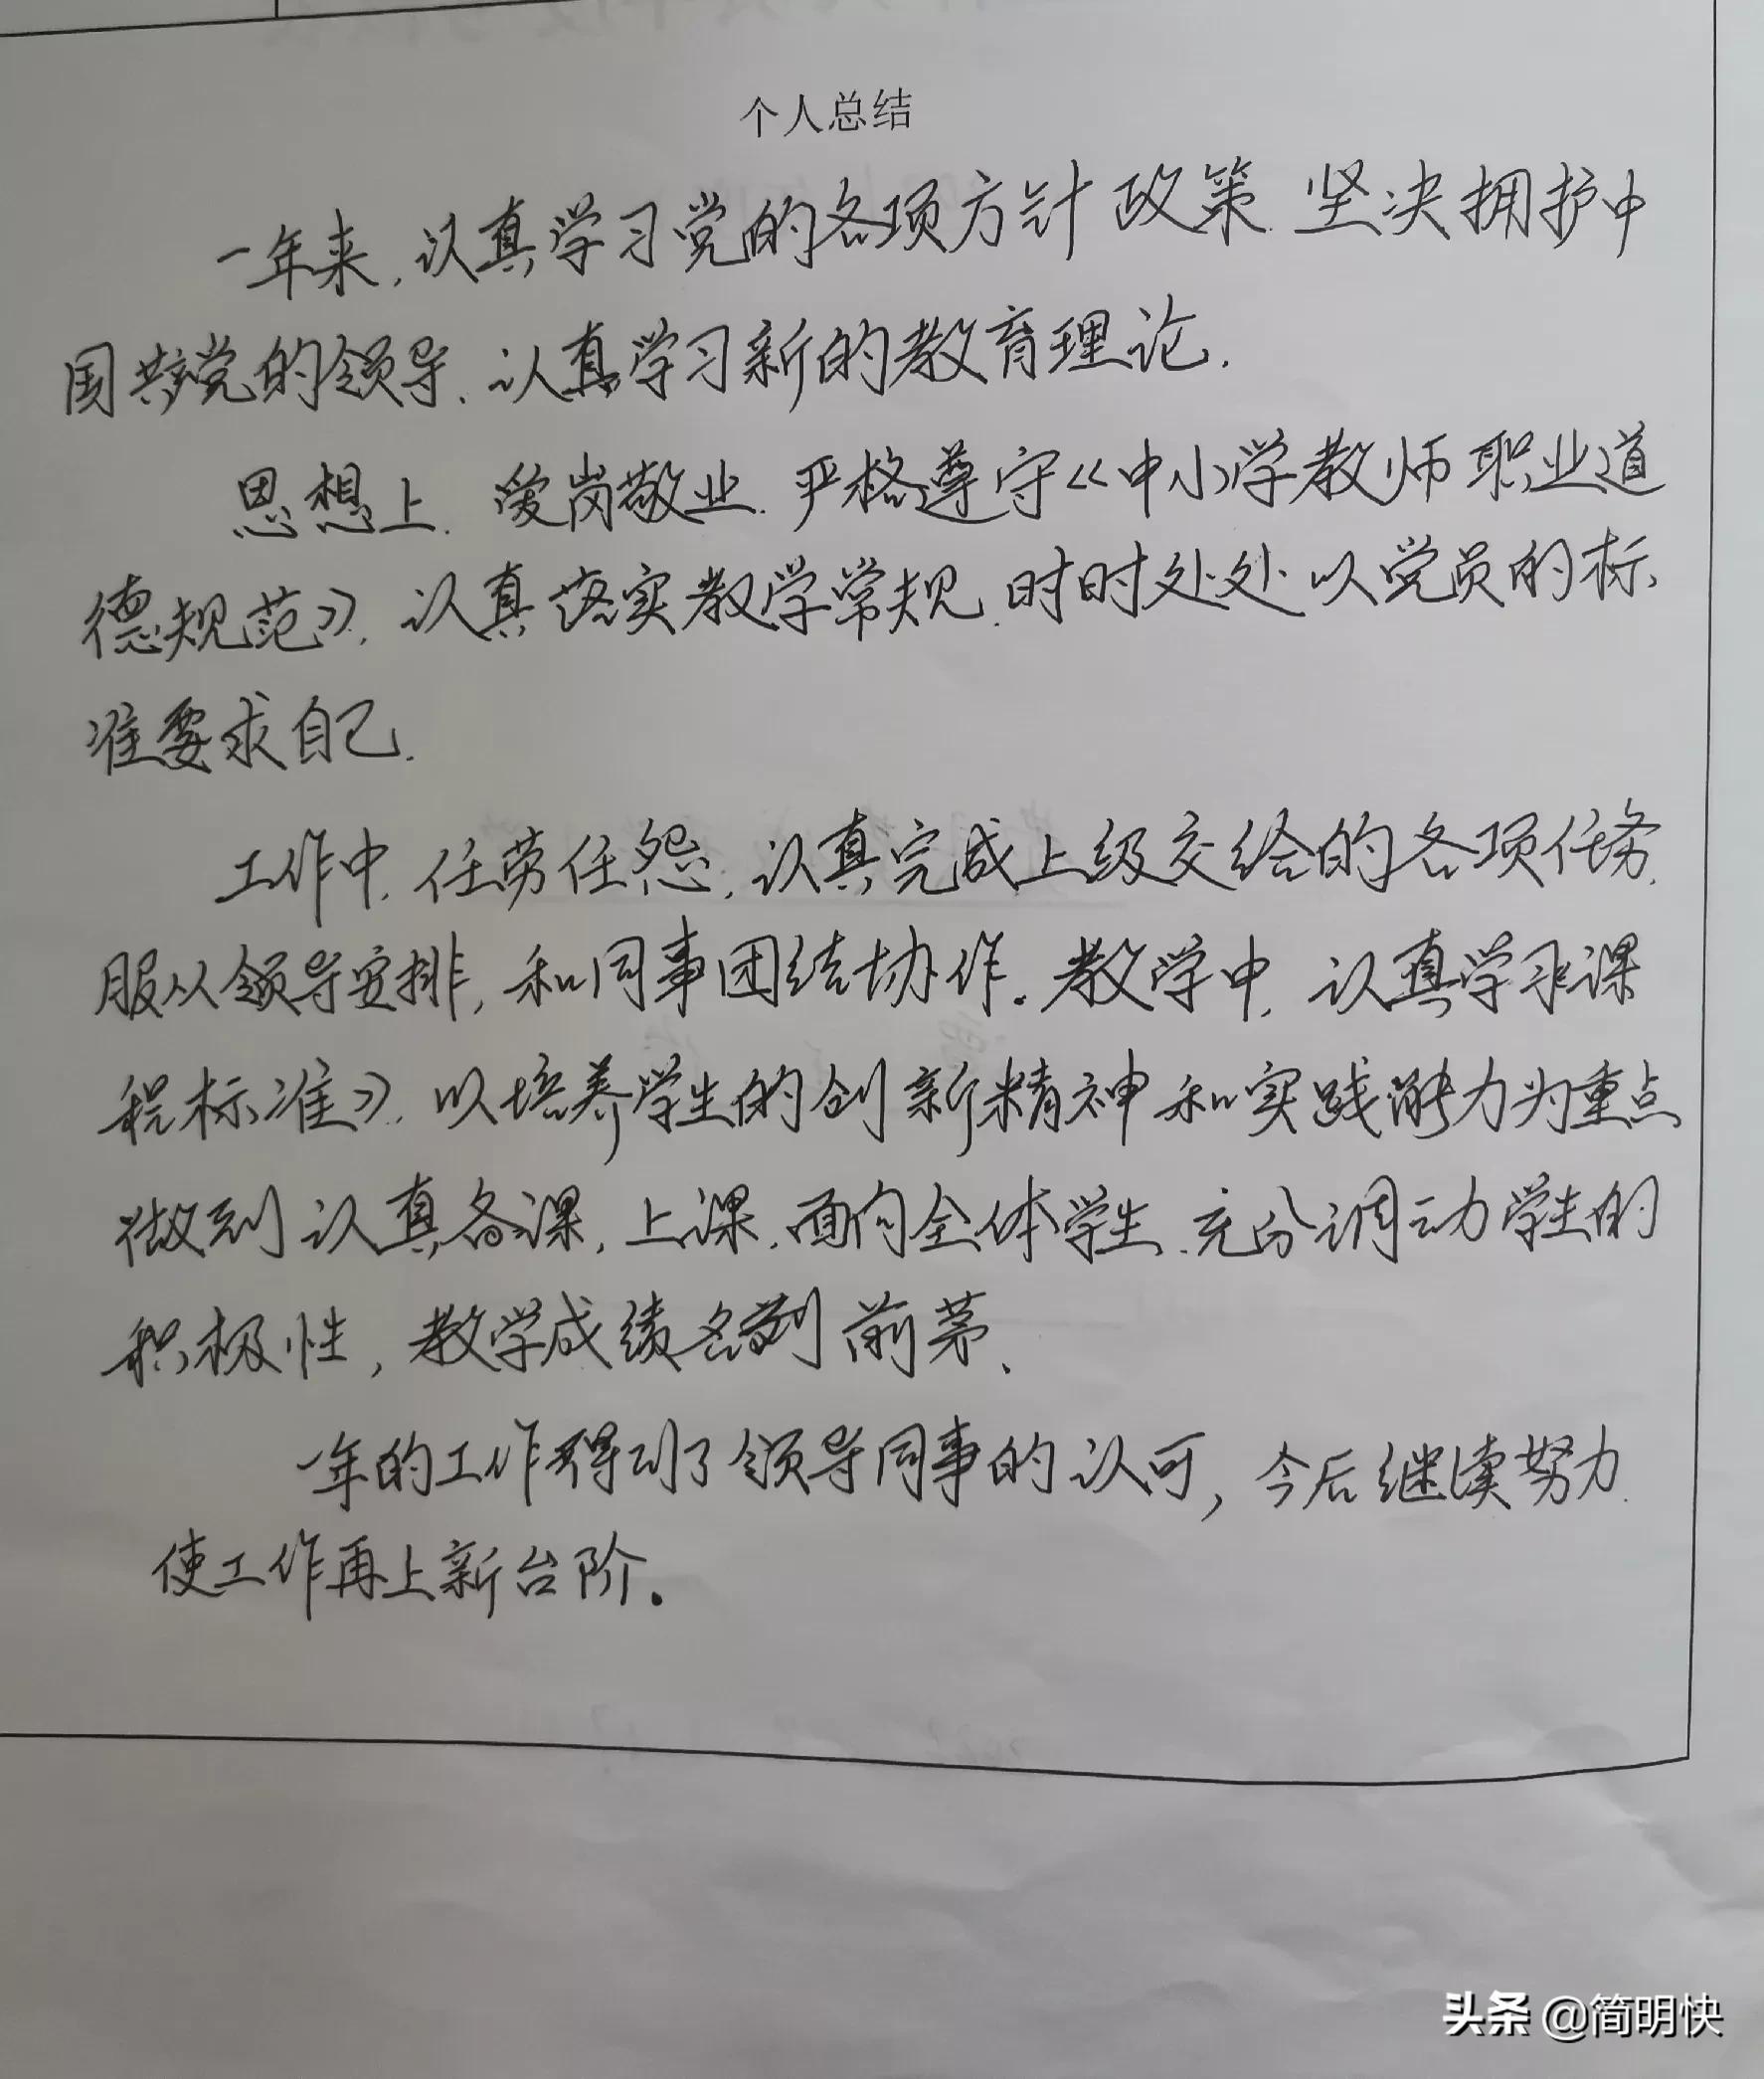 个人总结
一年来,认真学习党的各项方针政策.坚决拥护中
国共产党的领导.认真学习新的教育理论.
思想上.爱岗敬业.严格遵守《中小学教师职业道
德规范》.认真落实教学常规.时时处处以党员的标
准要求自己.
工作中,任劳任怨,认真完成上级交给的各项任务.
服从领导安排,和同事团结协作.教学中,认真学习课
程标准》.以培养学生的创新精神和实践能力为重点
做到认真备课,上课.面向全体学生.充分调动学生的
积极性,教学成绩名列前茅、
一年的工作得到了领导同事的认可,今后继续努力.
使工作再上新台阶.
头条 @简明快